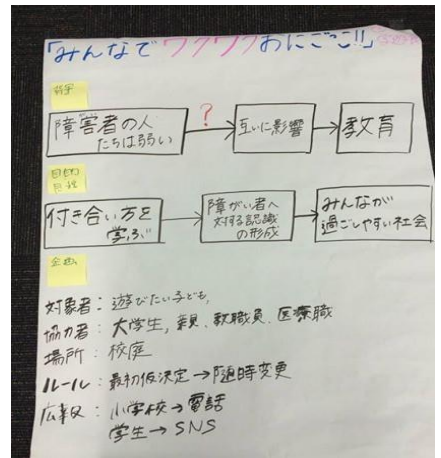 「みんなでワクワクおにごっこ!!」
背景
障害者の人
たちは弱い
?
互いに影響
教育
目的
付き合い方を
学ぶ
障がい者へ
対する認識
の形成
みんなが
過ごしやすい社会
企画
対象者:遊びたい子ども,
協力者:大学生,親,教職員,医療職
場所:校庭
ルール:最初仮決定→随時変更
広報:小学校→電話
学生→SNS